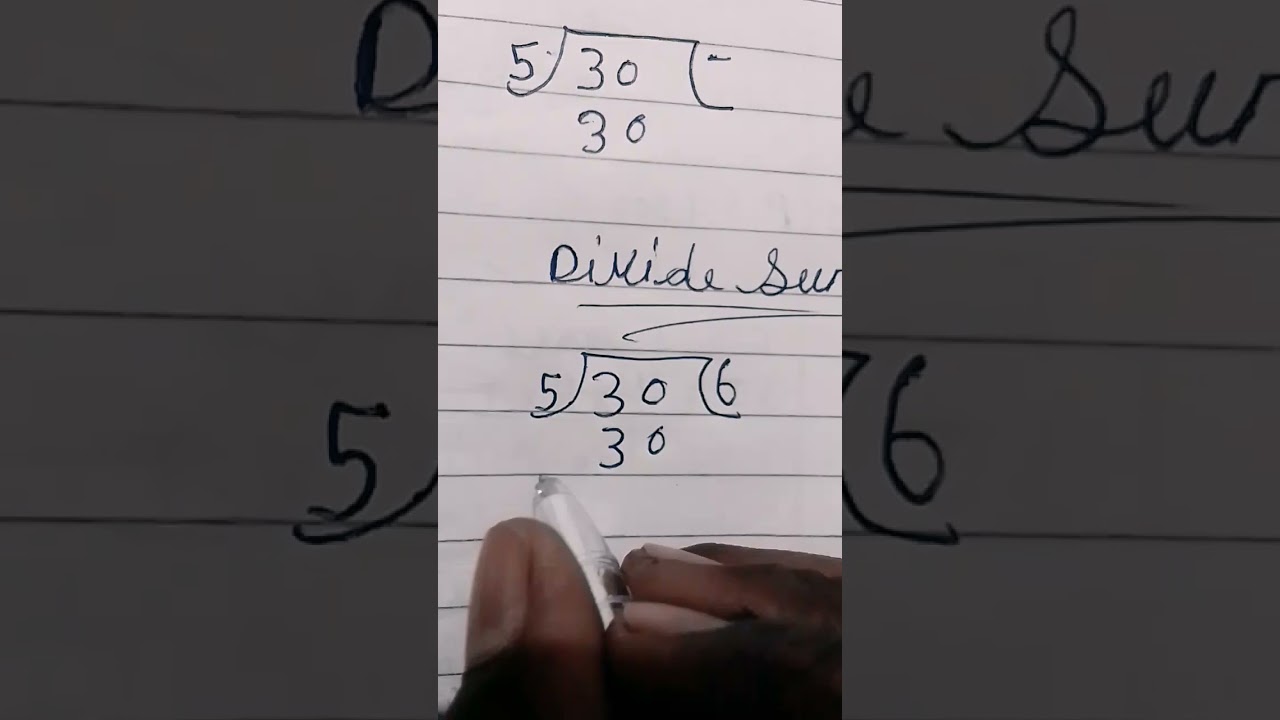 5)30(-
30
Divide Sum
5)30(6
30